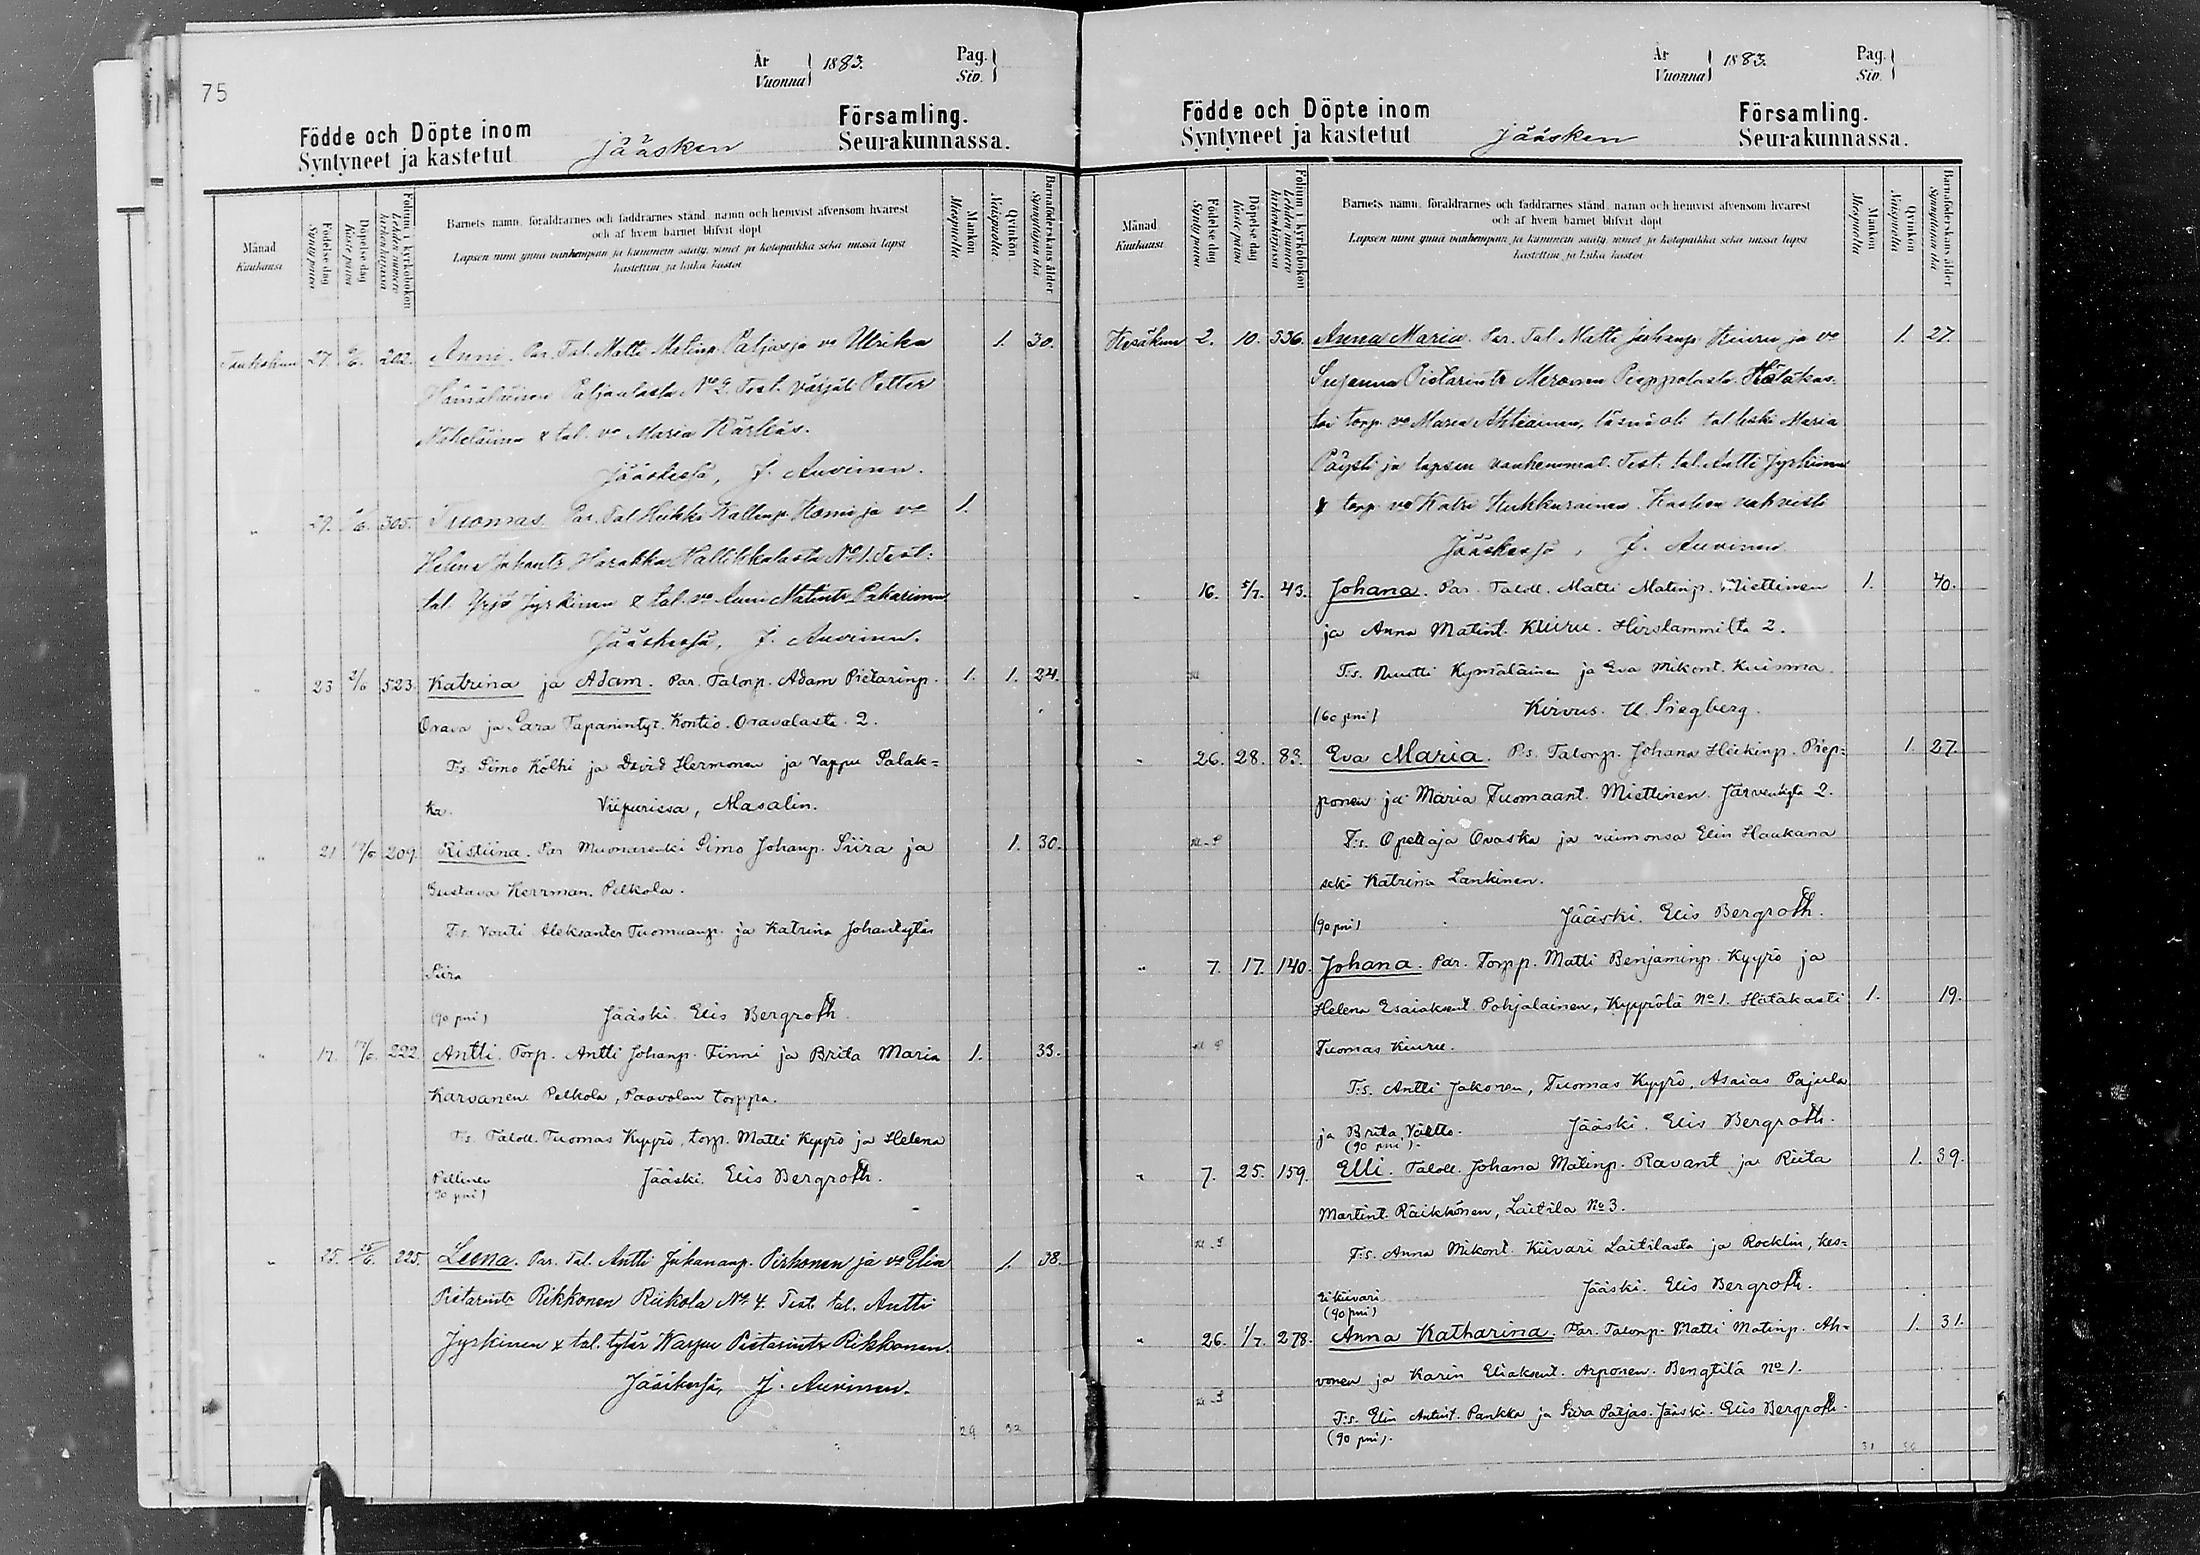 75
År Vuonna 1883. Pag. Siv.
Födde och Döpte inom Syntyneet ja kastetut Jääsken Församling. Seurakunnassa.
Månad Kuukausi
Födelse dag Synty päivä
Döpelse dag Kaste päivä
Folium i kyrkoboken Lehden numero kirkonkirjassa
Barnets namn, föräldrarnes och faddrarnes stånd, namn och hemvist äfvensom hvarest
och af hvem barnet blifvit döpt
Lapsen nimi ynnä vanhempain ja kummein sääty, nimet ja kotopaikka sekä missä lapsi
kastettiin ja kuka kastoi
Mankön Miespuolia
Qvinkön Naispuolia
Barnaföderskans ålder Synnyttäjän ikä
Toukokuu 27. 202. Anni. Par. Tal. Matti Matinp. Paljas ja vo Ulrika 1. 30.
Hämäläinen Paljaalasta No 2. Test. värjäli Petter
& tal. vo Maria Kärkäs.
Jääskessä, J. Auvinen.
" 29. 305. Tuomas. Par. Tal. Heikki Kallenp. Homi ja vo 1.
Helena Juhantr Harakka Kallikkalasta No 1. Test:
tal. Yrjö Jyrkinen & tal. vo Anni Matintr Pakarinen
Jääskessä, J. Auvinen.
" 23 2/6 523. Katrina ja Adam. Par. Talonp. Adam Pietarinp. 1. 1. 24.
Orava ja Sara Tapanintyt. Kontio. Oravalasta 2.
T:s. Simo Kölhi ja David Hermonen ja Vappu Salak=
ka. Viipurissa, Masalin.
" 21 209. Kristiina. Par Muonarenki Simo Johanp. Siira ja 1. 30.
Gustava Herrman. Pelkola.
T:s. Vouti Aleksanter Tuomaanp. ja Katrina Johantytär
Siira
(90 pni) Jääski. Elis Bergroth.
" 17. 17/6 222. Antti. Torp. Antti Johanp. Tinni ja Brita Maria 1. 33.
Karvanen Pelkola, Paavolan torppa.
T:s. Taloll. Tuomas Kyyrö, torp. Matti Kyyrö ja Helena
Pellinen Jääski. Elis Bergroth.
(90 pni)
" 25. 25/6. 225. Leena. Par. Tal. Antti Juhananp. Pirhonen ja vo Elin 1. 38.
Pietarintr Rikkonen Riikola No 4. Test. tal. Antti
Jyrkinen & tal. tytär Warpu Pietarintr Rikkonen.
Jääskessä, J. Auvinen.
29 32
År Vuonna 1883. Pag. Siv.
Födde och Döpte inom Syntyneet ja kastetut Jääsken Församling. Seurakunnassa.
Månad Kuukausi
Födelse dag Synty päivä
Döpelse dag Kaste päivä
Folium i kyrkoboken Lehden numero kirkonkirjassa
Barnets namn, föräldrarnes och faddrarnes stånd, namn och hemvist äfvensom hvarest
och af hvem barnet blifvit döpt
Lapsen nimi ynnä vanhempain ja kummein sääty, nimet ja kotopaikka sekä missä lapsi
kastettiin ja kuka kastoi
Mankön Miespuolia
Qvinkön Naispuolia
Barnaföderskans ålder Synnyttäjän ikä
Kesäkuu 2. 10. 336. Anna Maria. Par. Tal. Matti Juhanp. Kiuru ja vo 1. 27.
Susanna Pietarintr Meronen Pieppolasta. Hätäkas=
toi torp. vo Maria Ahtiainen, läsnä oli tal. leski Maria
Päysti ja lapsen vanhemmat. Test. tal. Antti Jyrkinen
& torp. vo Katri Hukkurainen. Kasteen vahvisti
Jääskessä, J. Auvinen
" 16. 5/7. 43. Johana. Par. Taloll. Matti Matinp. Miettinen 1. 40.
ja Anna Matint. Kiuru. Hirslammilta 2.
T:s. Nuutti Kymäläinen ja Eva Mikont. Kuisma.
(60 pni) Kirvus. U. Siegberg.
" 26. 28. 83. Eva Maria. P:s. Talonp. Johana Heikinp. Piep= 1. 27
ponen ja Maria Tuomaant. Miettinen. Järvenkylä 2.
T:s. Opettaja Ovaska ja vaimonsa Elin Haukana
sekä Katrina Lankinen.
(90 pni) Jääski. Elis Bergroth.
" 7. 17. 140. Johana. Par. Torpp. Matti Benjaminp. Kyyrö ja
Helena Esaiaksent. Pohjalainen, Kyyrölä No 1. Hätäkasti 1. 19.
Tuomas Kiuru.
T:s. Antti Jakonen, Tuomas Kyyrö, Asaias Pajula
ja Brita Valtto. Jääski. Elis Bergroth.
(90 pni).
" 7. 25. 159. Elli. Taloll. Johana Matinp. Ravant ja Riita 1. 39.
Martint. Räikkönen, Laitila No 3.
T:s. Anna Mikont. Kiivari Laitilasta ja Rocklin, kes=
tikiivari. Jääski. Elis Bergroth.
(90 pni)
" 26. 1/7. 278. Anna Katharina. Par. Talonp. Matti Matinp. Ah= 1. 31.
vonen ja Karin Eliaksent. Arponen. Bengtilä No 1.
T:s. Elin Antint. Pankka ja Siira Paljas. Jääski. Elis Bergroth.
(90 pni).
31